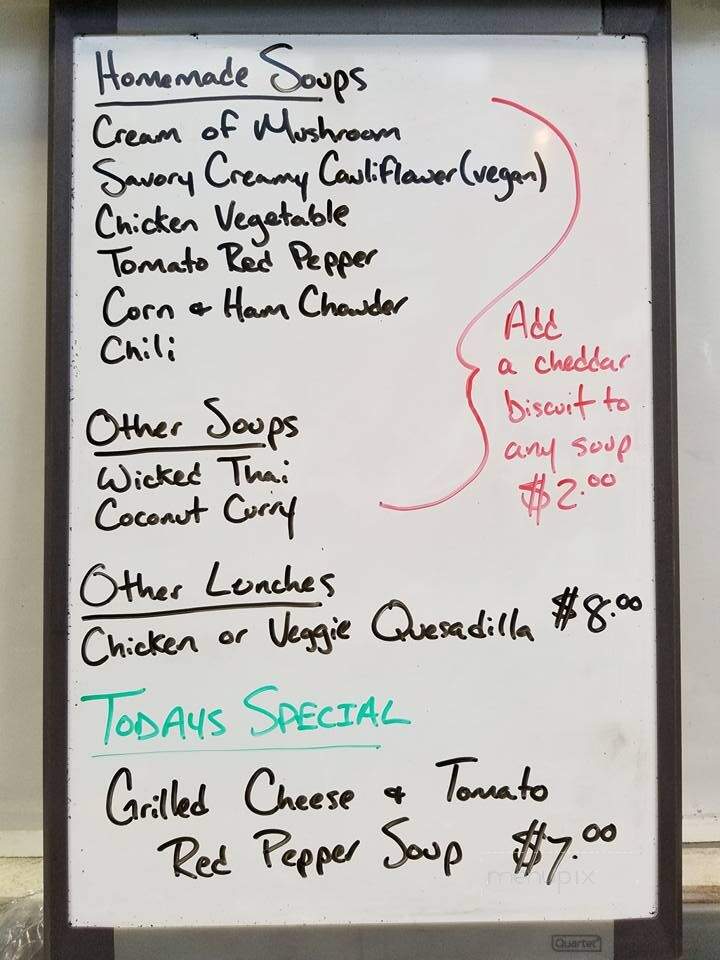 Homemade Soups
Cream of Mushroom
Savory Creamy Cauliflower (vegan)
Chicken Vegetable
Tomato Red Pepper
Corn & Ham Chowder
Chili
Add
a cheddar
biscuit to
any soup
$2.00
Other Soups
Wicked Thai
Coconut Curry
Other Lunches
Chicken or Veggie Quesadilla $8.00
TODAYS SPECIAL
Grilled Cheese & Tomato
Red Pepper Soup $7.00
menupix
Quartet